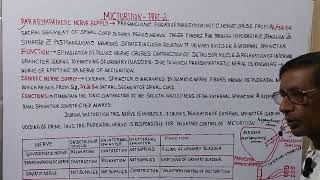 MICTURITION - PART-2
PARASYMPATHETIC NERVE SUPPLY - PREGANGLIONIC FIBERS OF PARASYMPATHETIC NERVE ARISE FROM
SACRAL SEGMENT OF SPINAL CORD & FORM PELVIC NERVE. THESE FIBERS RUN THROUGH HYPOGASTRIC GANGLION &
SYNAPSE WITH POSTGANGLIONIC NEURONS SITUATED IN CLOSE RELATION TO URINARY BLADDER & INTERNAL SPHINCTER.
FUNCTION - STIMULATION OF PELVIC NERVE CAUSES CONTRACTION OF DETRUSOR MUSCLE & RELAXATION OF INTERNAL
SPHINCTER LEADING TO EMPTYING OF URINARY BLADDER. DUE TO THIS PARASYMPATHETIC NERVE IS KNOWN AS
NERVE OF EMPTYING OR NERVE OF MICTURITION.
SOMATIC NERVE SUPPLY - EXTERNAL SPHINCTER IS INNERVATED BY SOMATIC NERVE FIBERS KNOWN AS PUDENDAL NERVE
WHICH ARISES FROM S2, S3 & S4 SACRAL SEGMENTS OF SPINAL CORD.
FUNCTIONS - MAINTAINS THE TONIC CONTRACTION OF THE SKELETAL MUSCLE FIBERS OF THE EXTERNAL SPHINCTER & KEEPS
THIS SPHINCTER CONSTRICTED ALWAYS.
DURING MICTURITION, THIS NERVE IS INHIBITED. IT CAUSES RELAXATION OF EXTERNAL SPHINCTER LEADING TO
VOIDING OF URINE. THUS, THE PUDENDAL NERVE IS RESPONSIBLE FOR VOLUNTARY CONTROL OF MICTURITION.
NERVE ON DETRUSOR MUSCLE ON INTERNAL SPHINCTER ON EXTERNAL SPHINCTER FUNCTION
SYMPATHETIC NERVE RELAXATION CONTRACTION NOT SUPPLIED FILLING OF URINARY BLADDER
PARASYMPATHETIC NERVE CONTRACTION RELAXATION NOT SUPPLIED EMPTYING OF URINARY BLADDER
SOMATIC NERVE NOT SUPPLIED NOT SUPPLIED CONTRACTION VOLUNTARY CONTROL OF MICTURITION